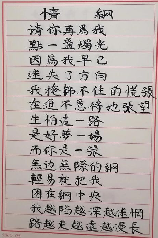 情網
請你再為我
點一盞燭光
因為我早已
迷失了方向
我掩飾不住的慌張
在迫不急待地張望
生怕這一路
是好夢一場
而你是一張
無邊無際的網
輕易就把我
困在網中央
我越陷越深越迷惘
路越走越遠越漫長